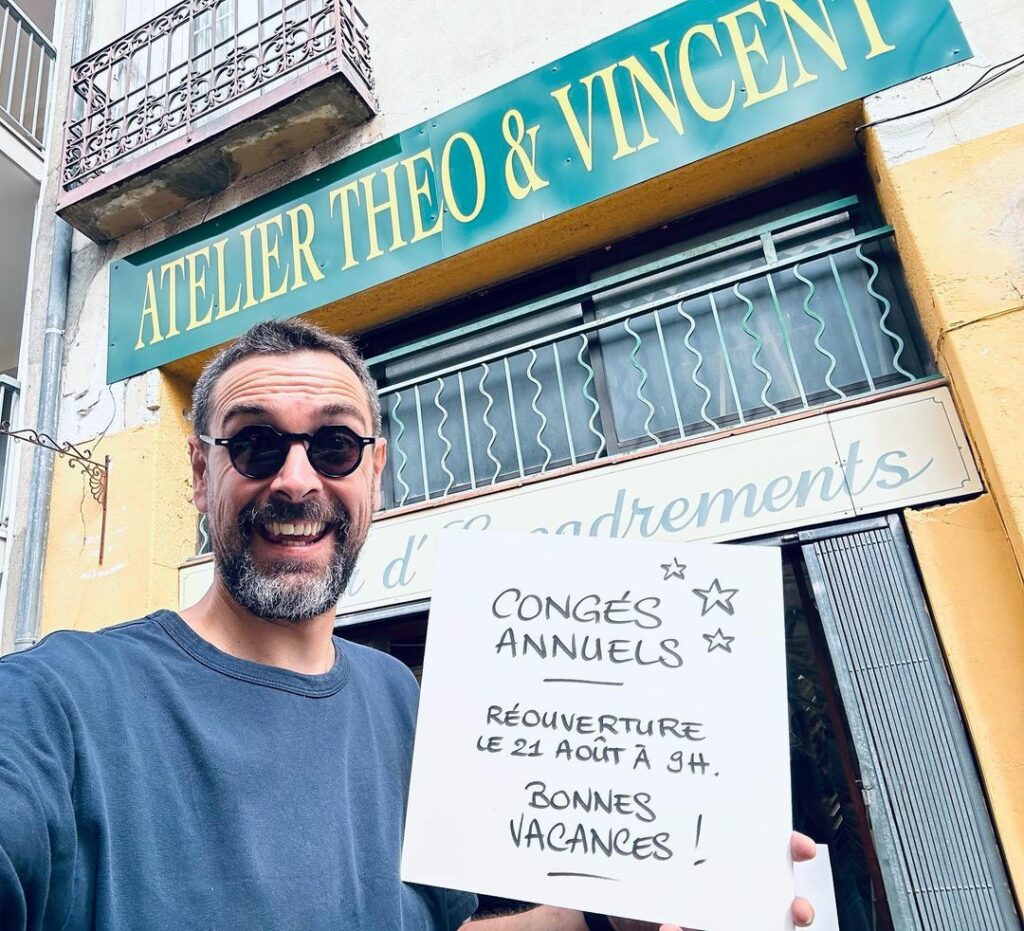 ATELIER THEO & VINCENT
d'Encadrements
CONGÉS
ANNUELS
RÉOUVERTURE
LE 21 AOÛT À 9H.
BONNES
VACANCES !